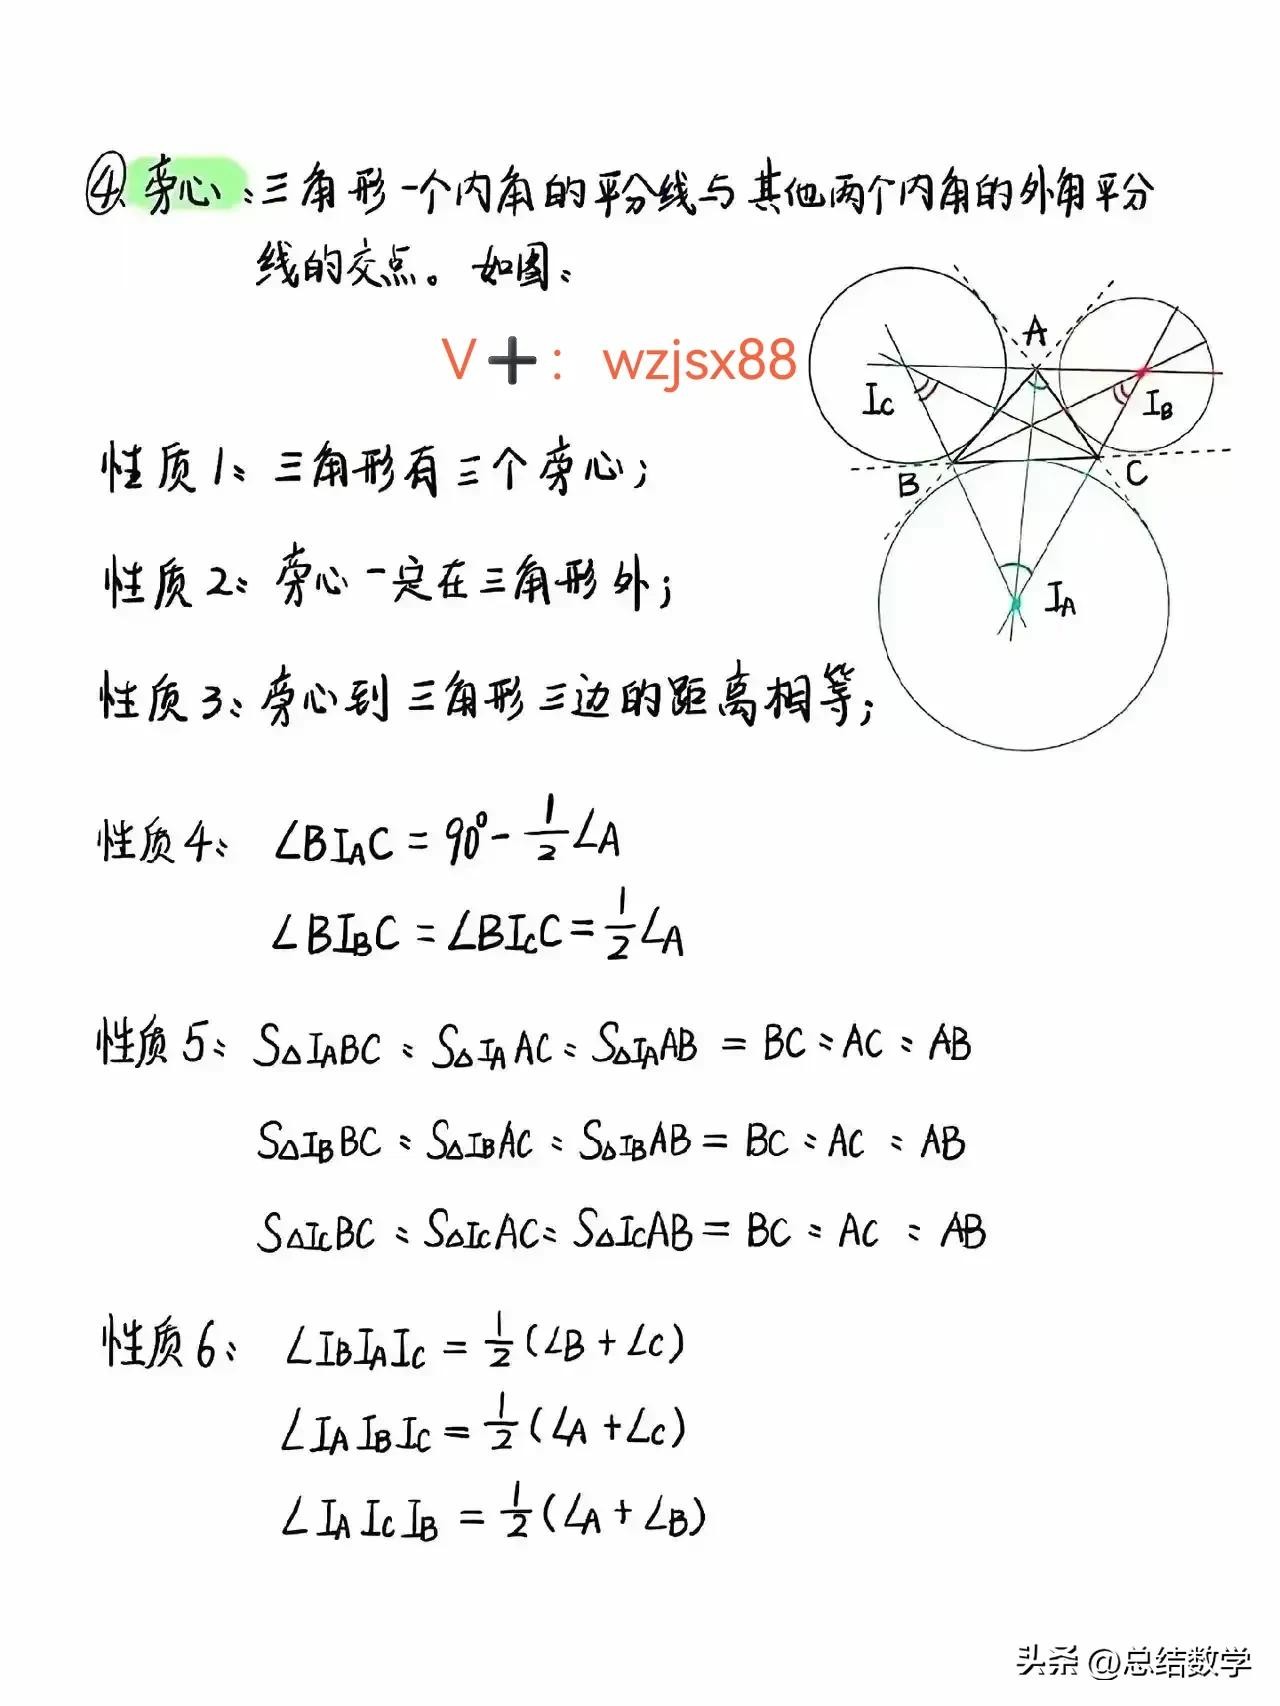 ④ 旁心：三角形一个内角的平分线与其他两个内角的外角平分
线的交点。如图：
V➕：wzjsx88
A
Ic
IB
B
C
IA
性质1：三角形有三个旁心；
性质2：旁心一定在三角形外；
性质3：旁心到三角形三边的距离相等；
性质4：∠BIAC = 90° - 1/2∠A
∠BIBC = ∠BIcC = 1/2∠A
性质5：S△IABC : S△IAAC : S△IAAB = BC : AC : AB
S△IBBC : S△IBAC : S△IBAB = BC : AC : AB
S△IcBC : S△IcAC : S△IcAB = BC : AC : AB
性质6：∠IBIAIc = 1/2(∠B + ∠C)
∠IAIBIc = 1/2(∠A + ∠C)
∠IAIcIB = 1/2(∠A + ∠B)
头条 @总结数学